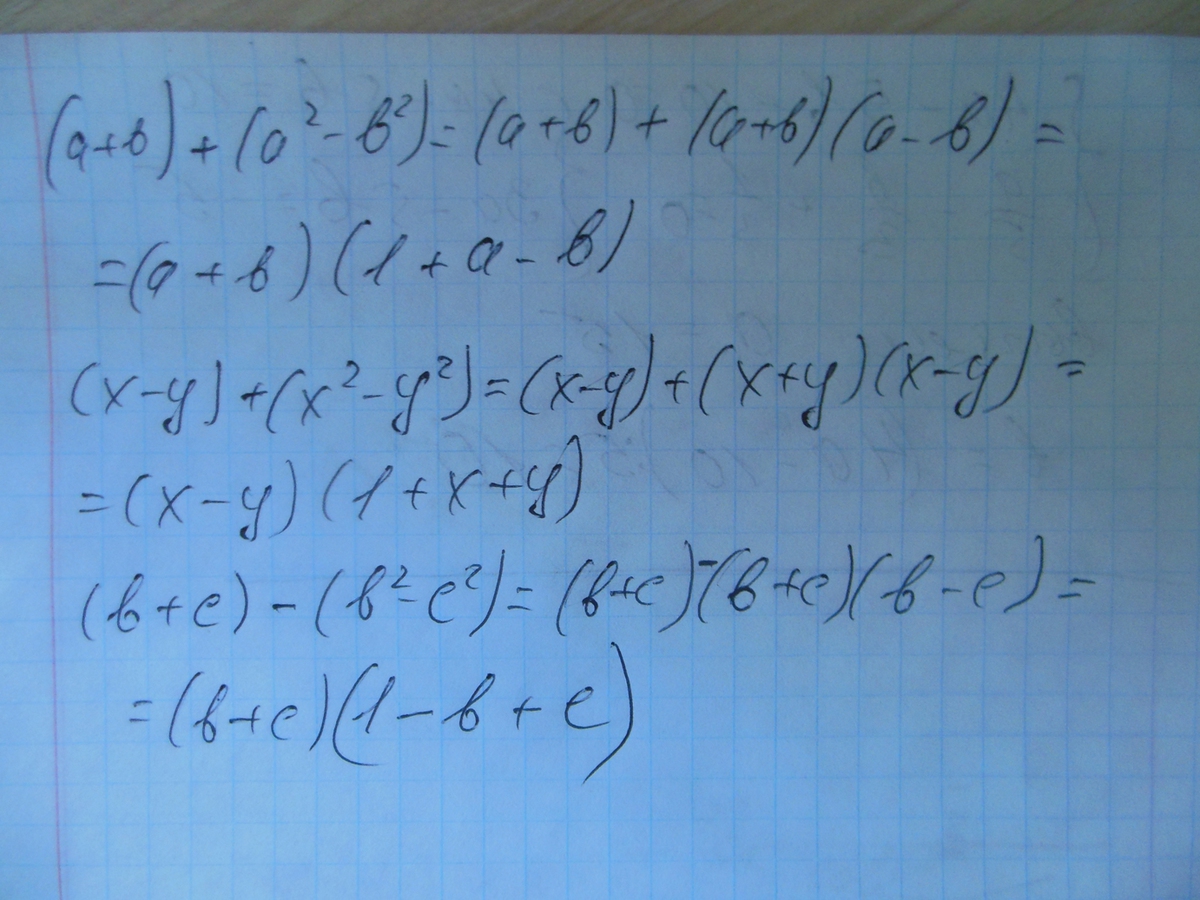 (a+b)+(a²-b²)=(a+b)+(a+b)(a-b)=
=(a+b)(1+a-b)
(x-y)+(x²-y²)=(x-y)+(x+y)(x-y)=
=(x-y)(1+x+y)
(b+c)-(b²-c²)=(b+c)-(b+c)(b-c)=
=(b+c)(1-b+c)